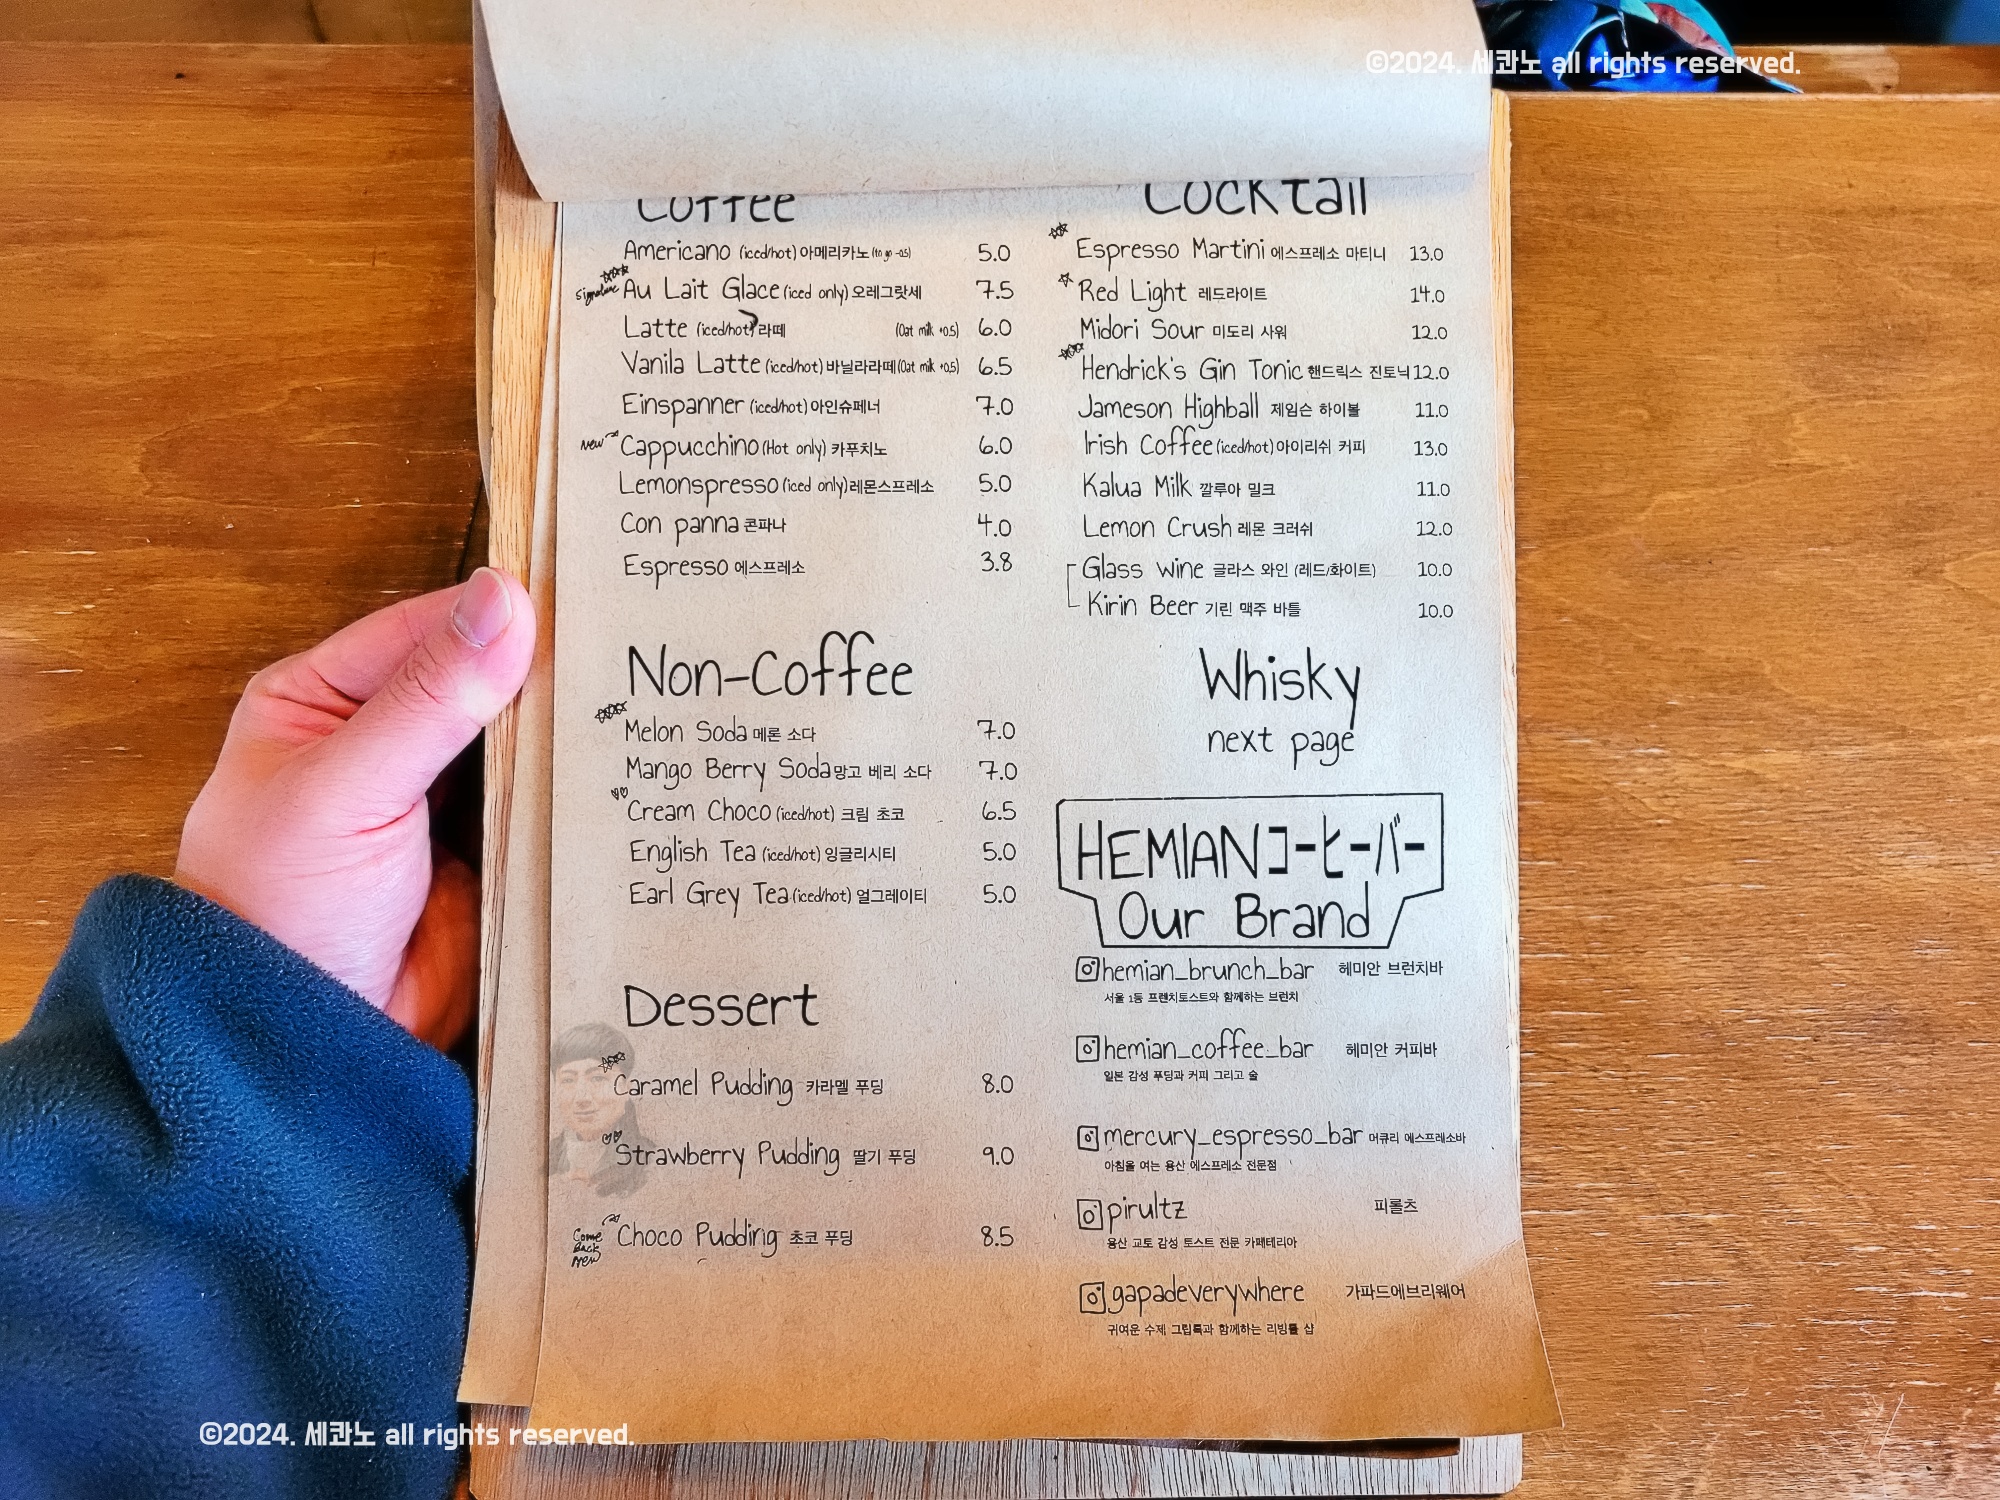 ©2024. 세콴노 all rights reserved.
Coffee
Americano (iced/hot) 아메리카노 (to go -0.5) 5.0
Signature Au Lait Glace (iced only) 오레그랏세 7.5
Latte (iced/hot) 라떼 (Oat milk +0.5) 6.0
Vanila Latte (iced/hot) 바닐라라떼 (Oat milk +0.5) 6.5
Einspanner (iced/hot) 아인슈페너 7.0
New Cappucchino (Hot only) 카푸치노 6.0
Lemonspresso (iced only) 레몬스프레소 5.0
Con panna 콘파나 4.0
Espresso 에스프레소 3.8
Non-Coffee
Melon Soda 메론 소다 7.0
Mango Berry Soda 망고 베리 소다 7.0
Cream Choco (iced/hot) 크림 초코 6.5
English Tea (iced/hot) 잉글리시티 5.0
Earl Grey Tea (iced/hot) 얼그레이티 5.0
Dessert
Caramel Pudding 카라멜 푸딩 8.0
Strawberry Pudding 딸기 푸딩 9.0
Come Back New Choco Pudding 초코 푸딩 8.5
Cocktail
Espresso Martini 에스프레소 마티니 13.0
Red Light 레드라이트 14.0
Midori Sour 미도리 사워 12.0
Hendrick's Gin Tonic 핸드릭스 진토닉 12.0
Jameson Highball 제임슨 하이볼 11.0
Irish Coffee (iced/hot) 아이리쉬 커피 13.0
Kalua Milk 깔루아 밀크 11.0
Lemon Crush 레몬 크러쉬 12.0
Glass wine 글라스 와인 (레드/화이트) 10.0
Kirin Beer 기린 맥주 바틀 10.0
Whisky
next page
HEMIAN コーヒーバー
Our Brand
hemian_brunch_bar 헤미안 브런치바
서울 1등 프렌치토스트와 함께하는 브런치
hemian_coffee_bar 헤미안 커피바
일본 감성 푸딩과 커피 그리고 술
mercury_espresso_bar 머큐리 에스프레소바
아침을 여는 용산 에스프레소 전문점
pirultz 피롤츠
용산 교토 감성 토스트 전문 카페테리아
gapadeverywhere 가파드에브리웨어
귀여운 수제 그립톡과 함께하는 리빙툴 샵
©2024. 세콴노 all rights reserved.